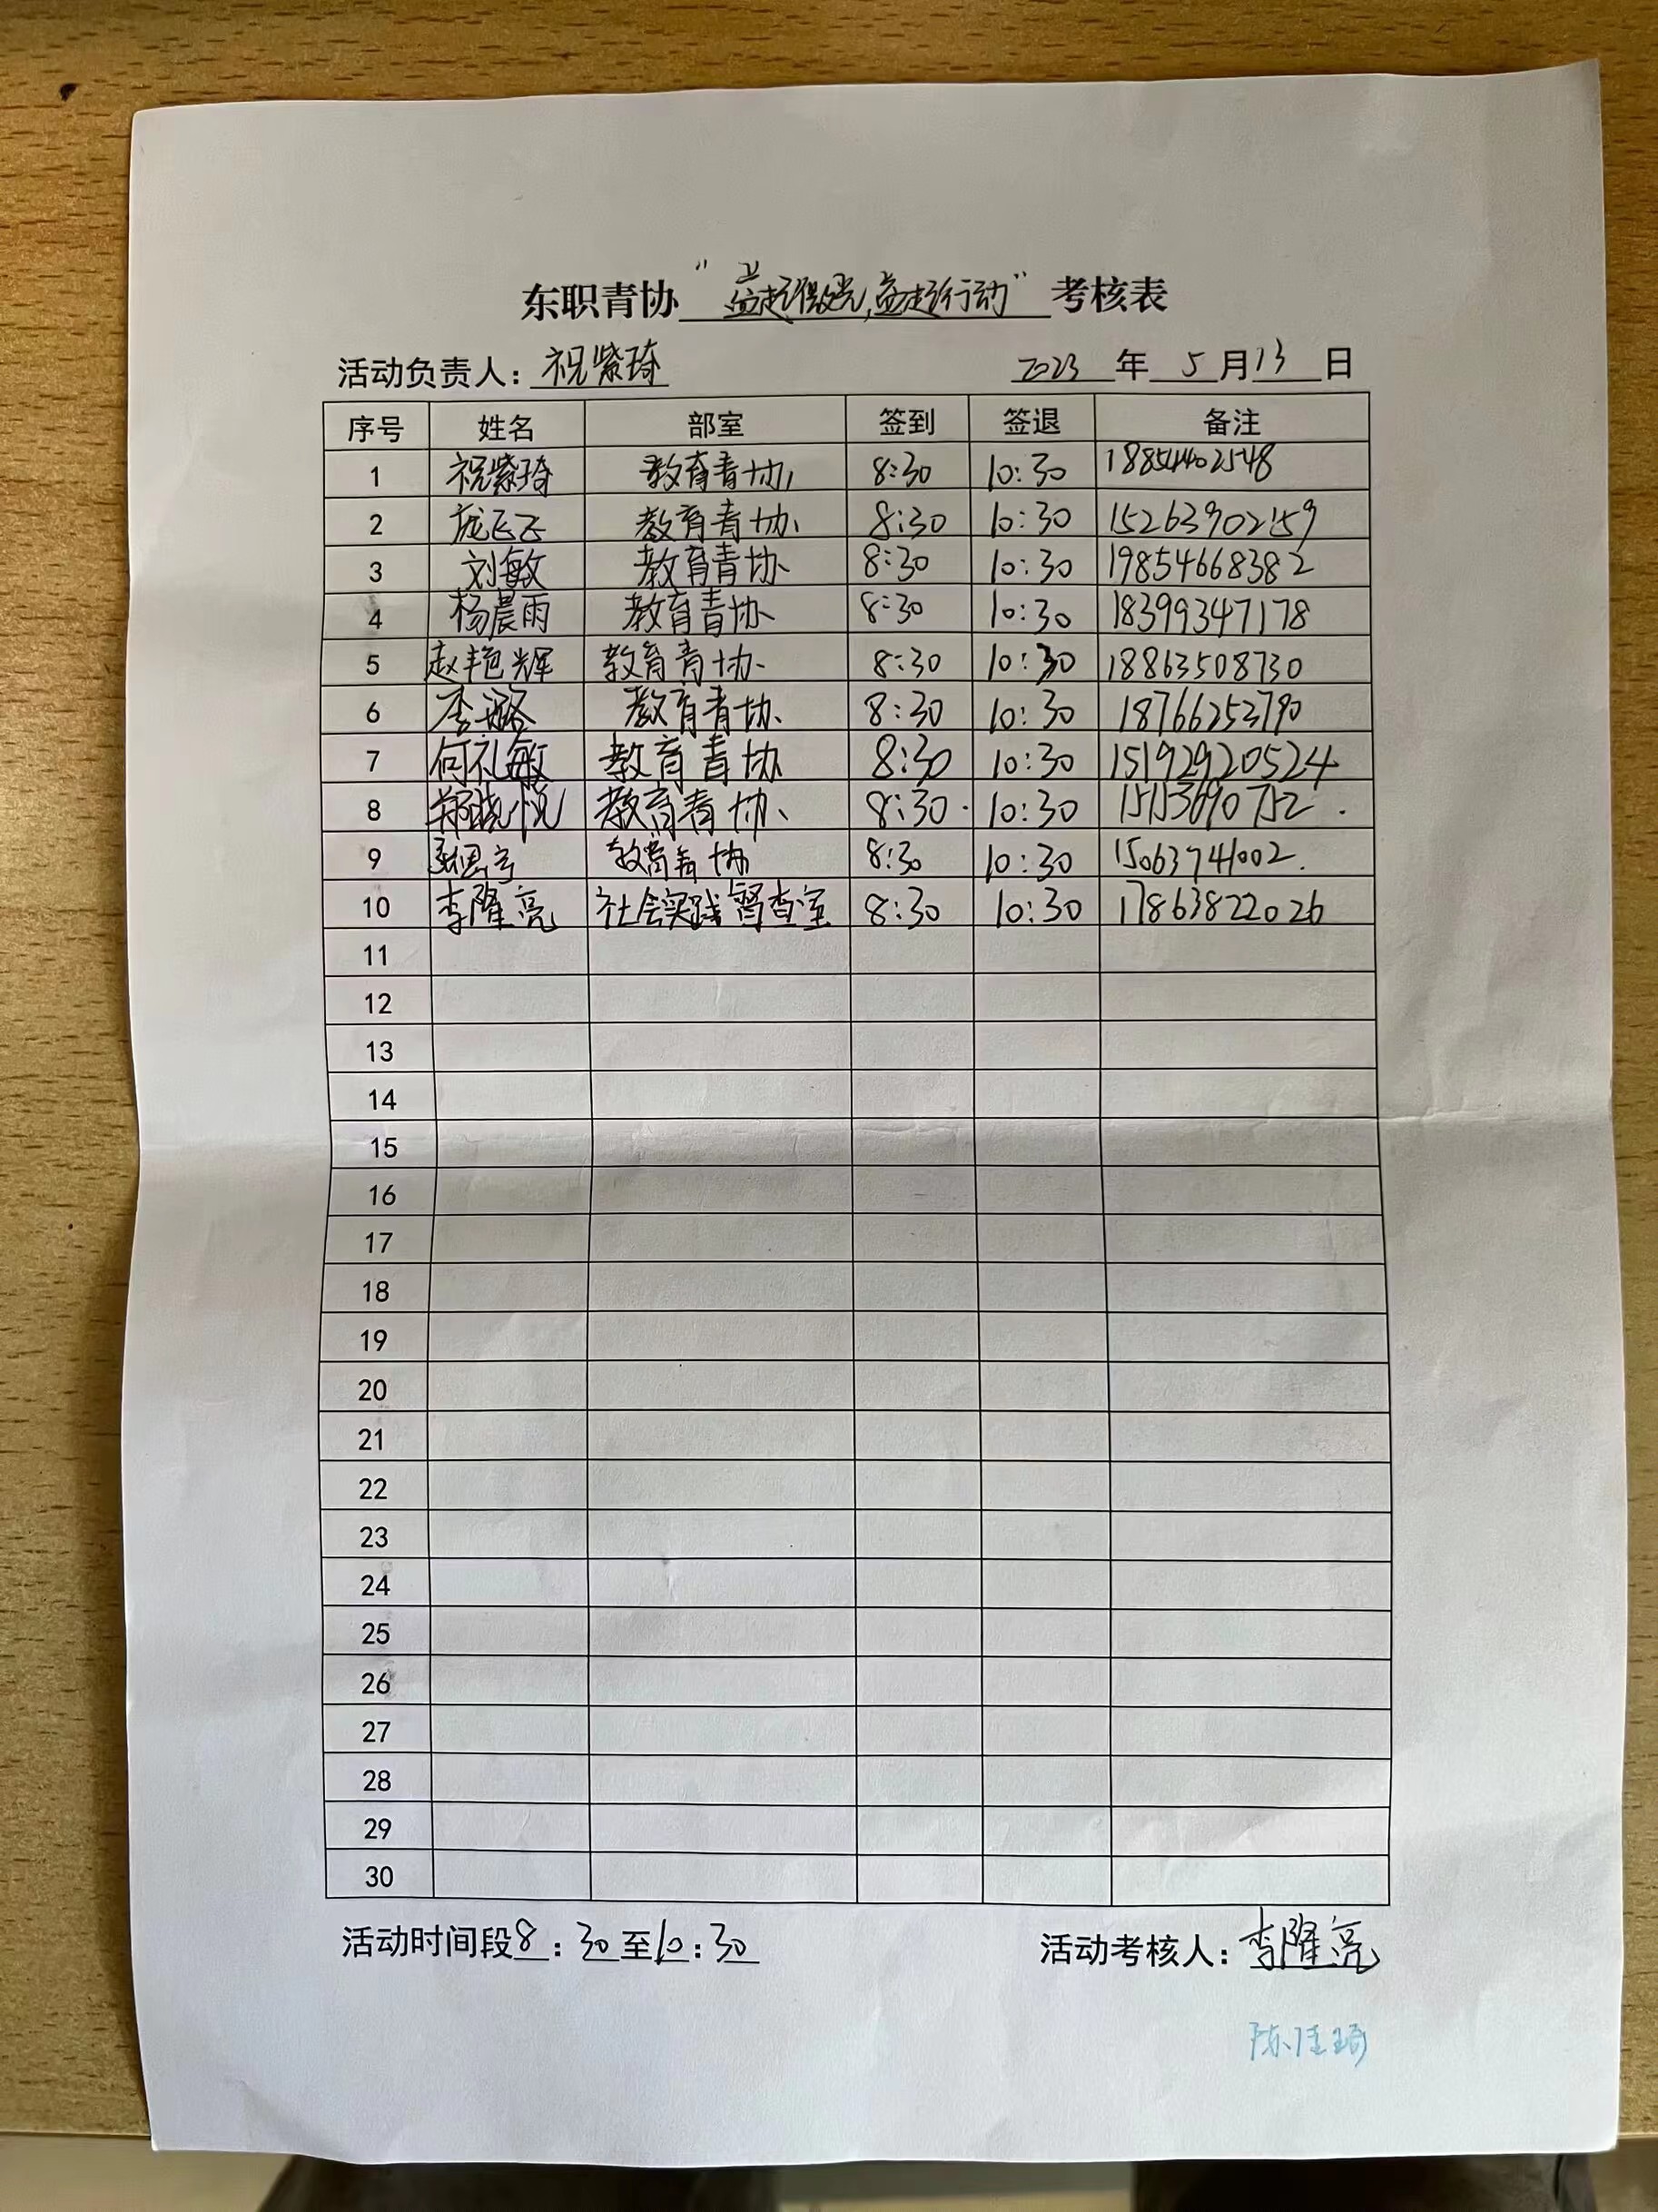 东职青协“益起微光,益起行动”考核表
活动负责人：祝紫琦 2023年5月13日
序号 姓名 部室 签到 签退 备注
1 祝紫琦 教育青协 8:30 10:30 18854402548
2 庞飞飞 教育青协 8:30 10:30 15263902159
3 刘敏 教育青协 8:30 10:30 19854668382
4 杨晨雨 教育青协 8:30 10:30 18399347178
5 赵艳辉 教育青协 8:30 10:30 18863508730
6 李璐 教育青协 8:30 10:30 18766253790
7 何礼敏 教育青协 8:30 10:30 15192920524
8 郑晓悦 教育青协 8:30 10:30 15153690752
9 教育青协 8:30 10:30 15063741002
10 李隆亮 社会实践督查室 8:30 10:30 17863822026
11
12
13
14
15
16
17
18
19
20
21
22
23
24
25
26
27
28
29
30
活动时间段8：30至10：30 活动考核人：李隆亮
陈佳琦